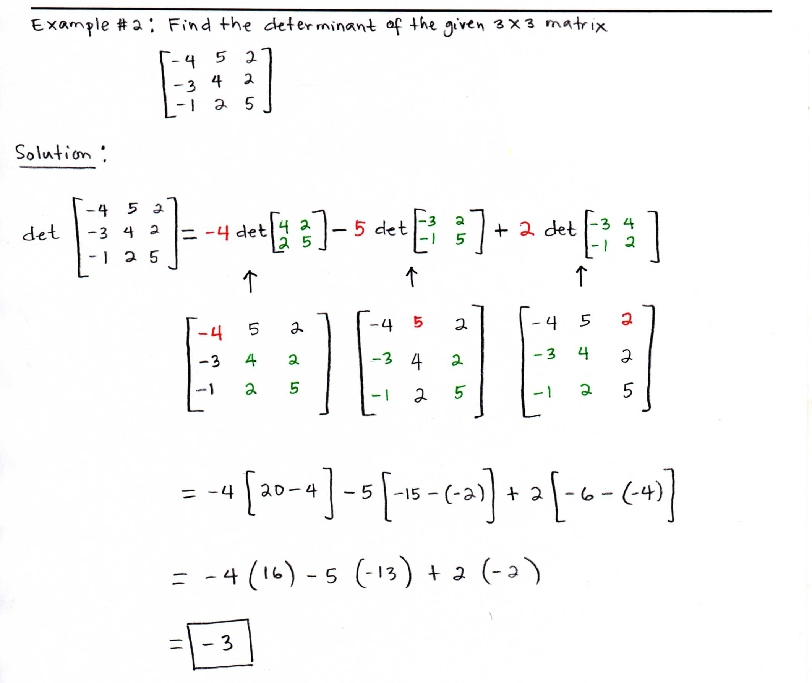 Example #2: Find the determinant of the given 3x3 matrix
[-4 5 2
-3 4 2
-1 2 5]
Solution:
det [-4 5 2
-3 4 2
-1 2 5] = -4 det [4 2
2 5] - 5 det [-3 2
-1 5] + 2 det [-3 4
-1 2]
↑ ↑ ↑
[-4 5 2
-3 4 2
-1 2 5]
[-4 5 2
-3 4 2
-1 2 5]
[-4 5 2
-3 4 2
-1 2 5]
= -4 [20-4] - 5 [-15-(-2)] + 2 [-6-(-4)]
= -4 (16) - 5 (-13) + 2 (-2)
= -3